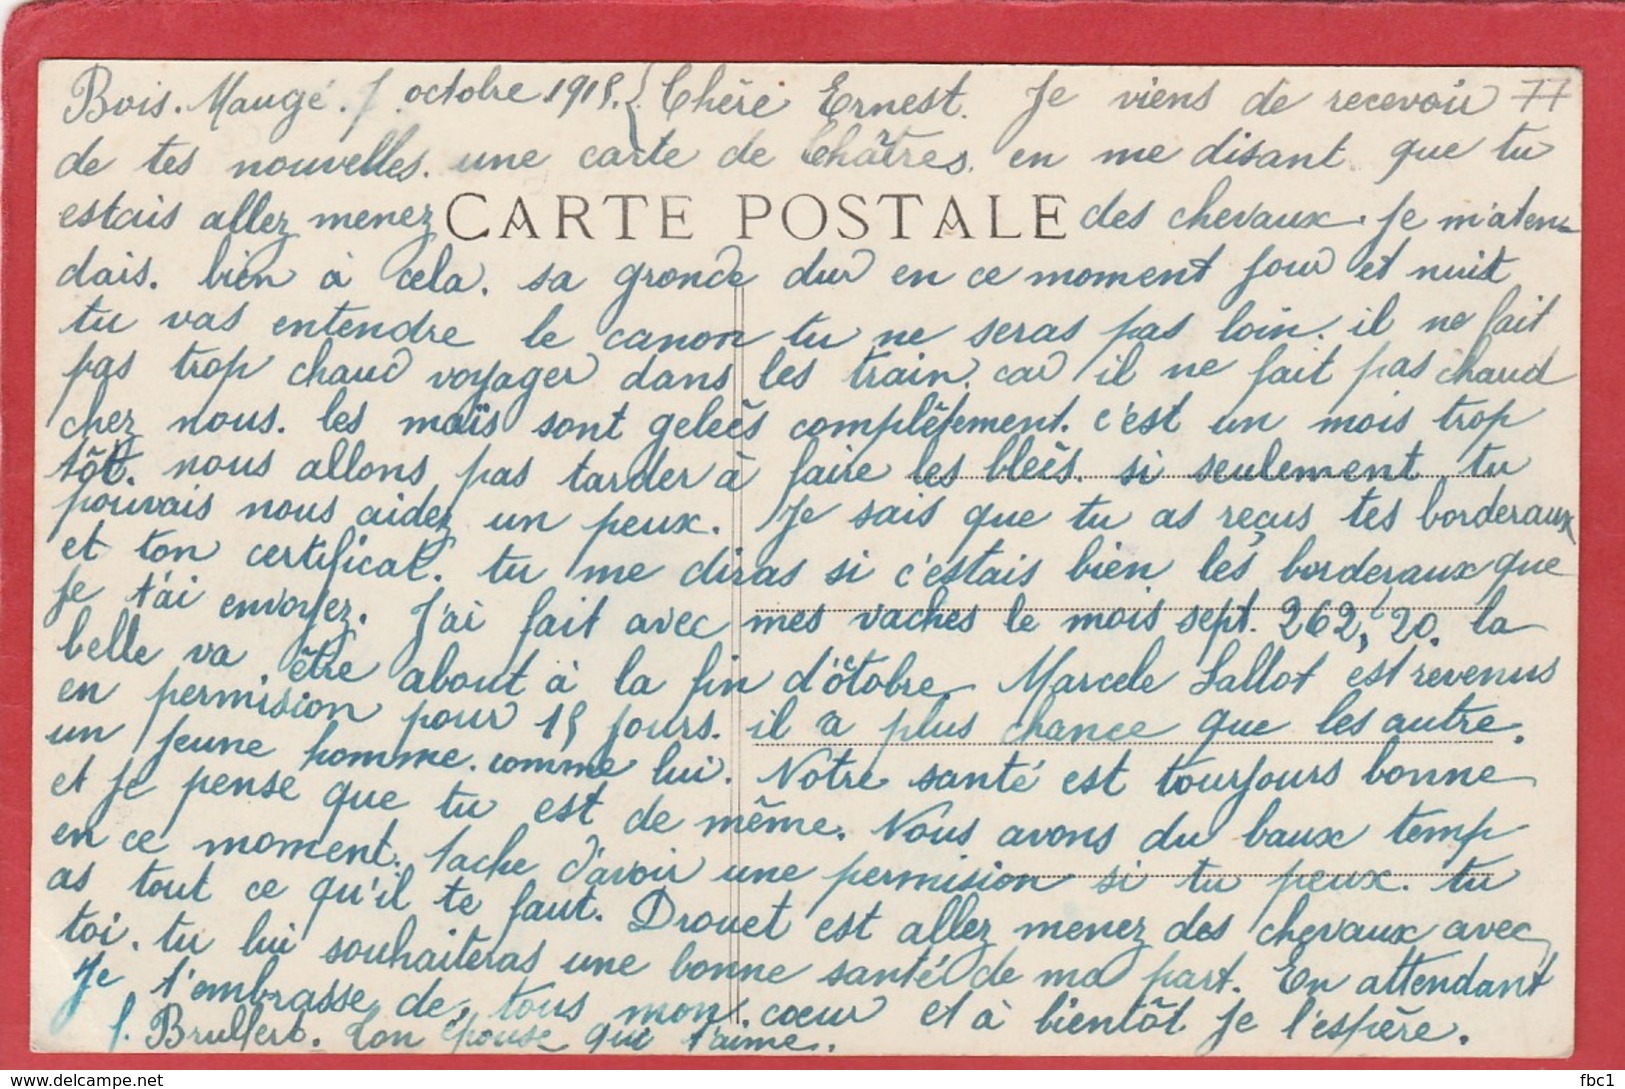 Bois. Maugé. 7 octobre 1915. Chère Ernest. Je viens de recevoir 77
de tes nouvelles. une carte de Châtres. en me disant que tu
estais allez menez CARTE POSTALE des chevaux. Je m'aten-
dais. bien à cela. sa gronde dur en ce moment jour et nuit
tu vas entendre le canon tu ne seras pas loin. il ne fait
pas trop chaud voyager dans les train. car il ne fait pas chaud
chez nous. les maïs sont geleés complêtement. c'est un mois trop
tôt. nous allons pas tarder à faire les bleés. si seulement tu
pouvais nous aidez un peux. Je sais que tu as reçus tes borderaux
et ton certificat. tu me diras si c'estais bien les borderaux que
je t'ai envoyez. J'ai fait avec mes vaches le mois sept. 262,20. la
belle va être about à la fin d'octobre. Marcele Lallot est revenus
en permision pour 15 jours. il a plus chance que les autre.
un jeune homme. comme lui. Notre santé est tourjours bonne
et je pense que tu est de même. Nous avons du baux temp
en ce moment. tache d'avoir une permision si tu peux. tu
as tout ce qu'il te faut. Drouet est allez menez des chevaux avec
toi. tu lui souhaiteras une bonne santé de ma part. En attendant
Je t'embrasse de tous mon coeur et à bientôt je l'espère.
Ton épouse qui t'aime.
fbc1